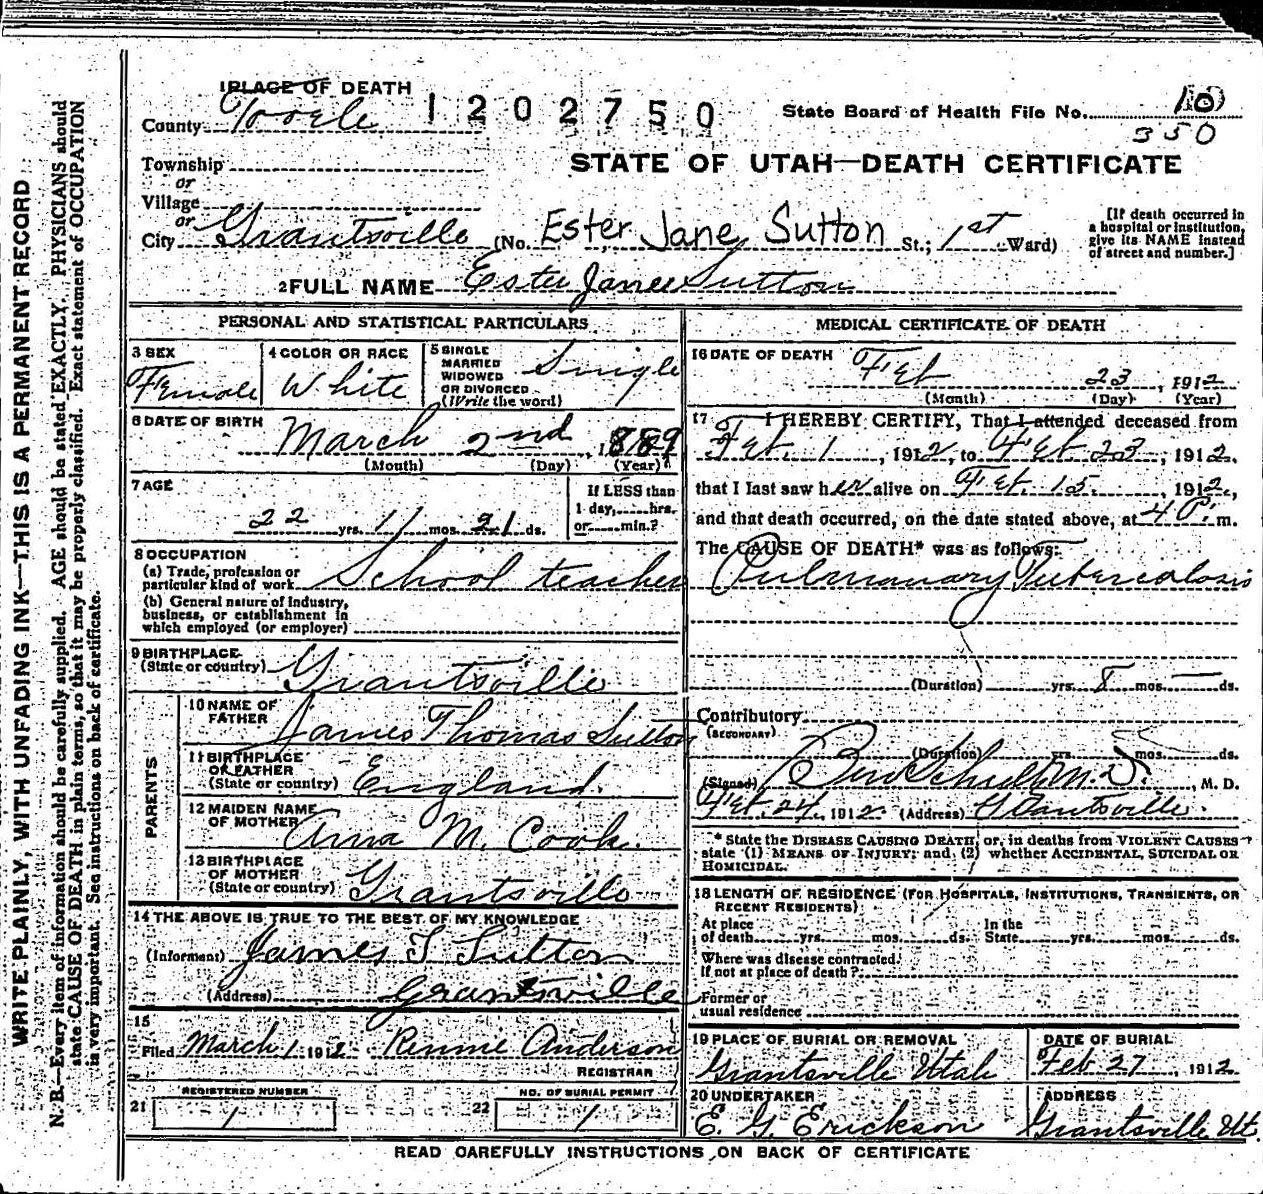 WRITE PLAINLY, WITH UNFADING INK—THIS IS A PERMANENT RECORD
N. B.—Every item of information should be carefully supplied. AGE should be stated EXACTLY. PHYSICIANS should
state CAUSE OF DEATH in plain terms, so that it may be properly classified. Exact statement of OCCUPATION
is very important. See instructions on back of certificate.
1 PLACE OF DEATH
County Tooele
1202750
State Board of Health File No. 10
350
Township
or
Village
or
STATE OF UTAH—DEATH CERTIFICATE
City Grantsville (No. Ester Jane Sutton St.; 1st Ward)
[If death occurred in
a hospital or institution,
give its NAME instead
of street and number.]
2 FULL NAME Ester Jane Sutton
PERSONAL AND STATISTICAL PARTICULARS
3 SEX
Female
4 COLOR OR RACE
White
5 SINGLE
MARRIED
WIDOWED
OR DIVORCED
(Write the word)
Single
6 DATE OF BIRTH
March 2nd, 1889
(Month) (Day) (Year)
7 AGE
22 yrs. 11 mos. 21 ds.
If LESS than
1 day,.....hrs.
or.....min.?
8 OCCUPATION
(a) Trade, profession or
particular kind of work School teacher
(b) General nature of industry,
business, or establishment in
which employed (or employer)
9 BIRTHPLACE
(State or country) Grantsville
PARENTS
10 NAME OF
FATHER James Thomas Sutton
11 BIRTHPLACE
OF FATHER
(State or country) England
12 MAIDEN NAME
OF MOTHER Anna M. Cook.
13 BIRTHPLACE
OF MOTHER
(State or country) Grantsville
14 THE ABOVE IS TRUE TO THE BEST OF MY KNOWLEDGE
(Informant) James T Sutton
(Address) Grantsville
15
Filed March 1, 1912 Rennie Anderson
REGISTRAR
REGISTERED NUMBER
21 1
NO. OF BURIAL PERMIT
22 1
MEDICAL CERTIFICATE OF DEATH
16 DATE OF DEATH Feb 23, 1912
(Month) (Day) (Year)
17 I HEREBY CERTIFY, That I attended deceased from
Feb. 1, 1912, to Feb 23, 1912,
that I last saw her alive on Feb. 15, 1912,
and that death occurred, on the date stated above, at 4 P. m.
The CAUSE OF DEATH* was as follows:
Pulmonary Tuberculosis
(Duration) yrs. 8 mos. — ds.
Contributory
(SECONDARY)
(Duration) yrs. mos. ds.
(Signed) M. D., M. D.
Feb. 24, 1912 (Address) Grantsville.
* State the DISEASE CAUSING DEATH, or, in deaths from VIOLENT CAUSES
state (1) MEANS OF INJURY; and (2) whether ACCIDENTAL, SUICIDAL OR
HOMICIDAL.
18 LENGTH OF RESIDENCE (FOR HOSPITALS, INSTITUTIONS, TRANSIENTS, OR
RECENT RESIDENTS)
At place In the
of death yrs. mos. ds. State yrs. mos. ds.
Where was disease contracted
if not at place of death?
Former or
usual residence
19 PLACE OF BURIAL OR REMOVAL
Grantsville Utah
DATE OF BURIAL
Feb 27, 1912
20 UNDERTAKER
E. G. Erickson
ADDRESS
Grantsville Ut.
READ CAREFULLY INSTRUCTIONS ON BACK OF CERTIFICATE